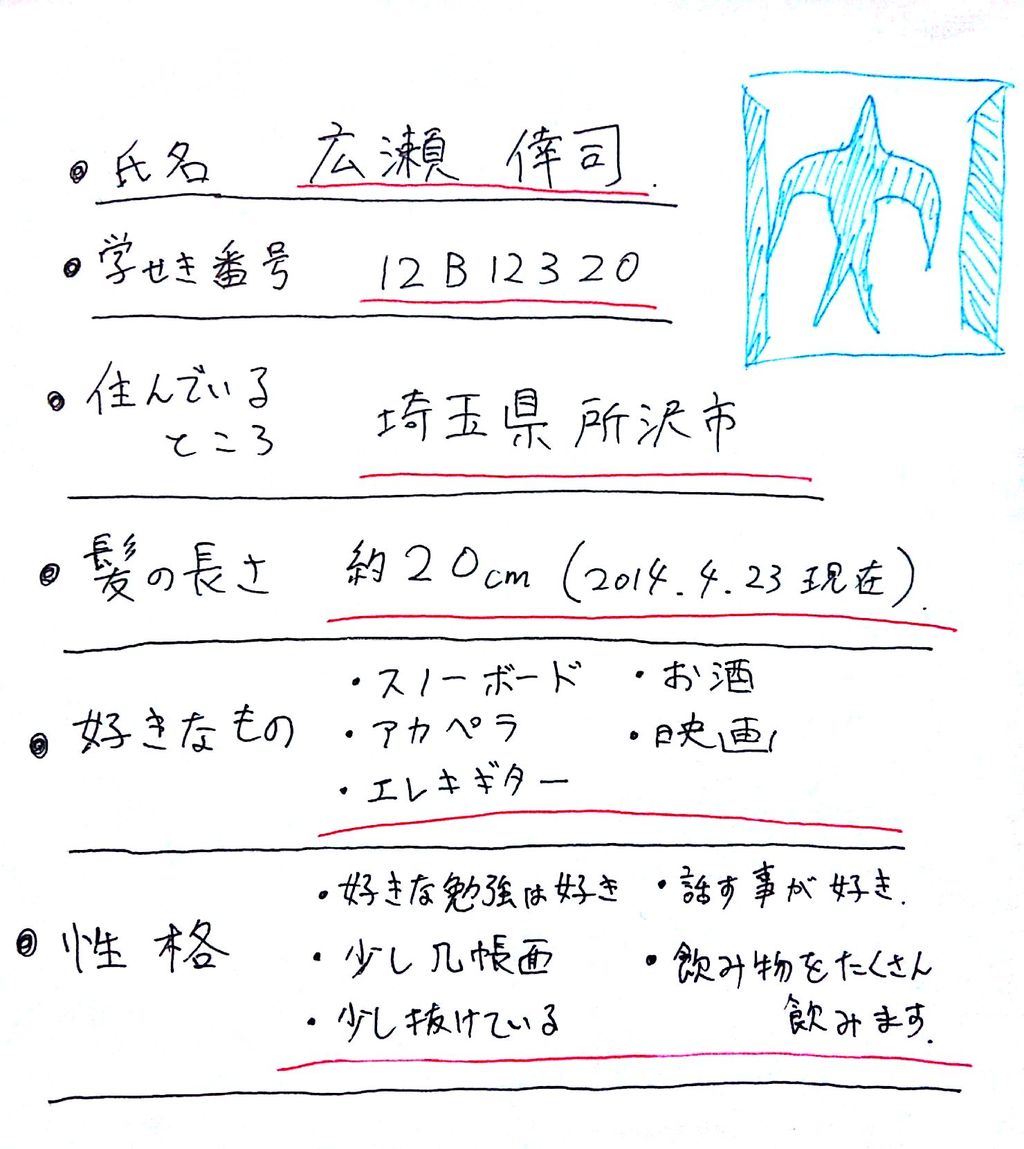 氏名 広瀬 倖司.
学せき番号 12B12320
住んでいる
ところ 埼玉県 所沢市
髪の長さ 約20cm (2014.4.23 現在).
・スノーボード ・お酒
好きなもの ・アカペラ ・映画
・エレキギター
・好きな勉強は好き ・話す事が好き.
性格 ・少し几帳面 ・飲み物をたくさん
・少し抜けている 飲みます.